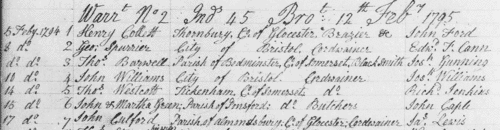 Warrt. No. 2 Ind. 45 Brot. 12th Feby. 1795
5 Feby. 1794 1 Henry Collett Thornbury, Co. of Glocester Brazier &c John Ford
8 do. 2 Geo. Spurrier City of Bristol Cordwainer Edwd. T. Cann
do. do. 3 Thos. Barwell Parish of Bedminster, C. of Somerset, Black Smith Jos. Gunning
10 do. 4 John Williams City of Bristol Cordwainer Jos. Williams
14 do. 5 Thos. Westcott Tickenham, C. of Somerset do. Richd. Jenkins
15 do. 6 John & Martha Green; Parish of Prisford; do. Butchers John Cagle
17 do. 7 John Parish of Almondsbury, C. of Glocester; Cordwainer Jas. Lewis